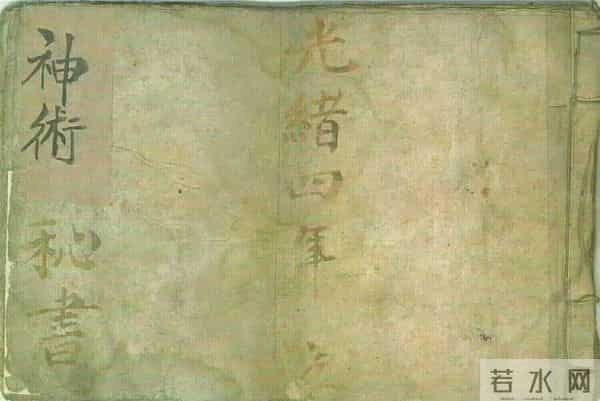 光緒四年
神術秘書
若水网